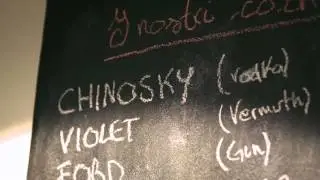 I nostri co
CHINOSKY (vodka)
VIOLET (Vermuth)
FORD (Gin)